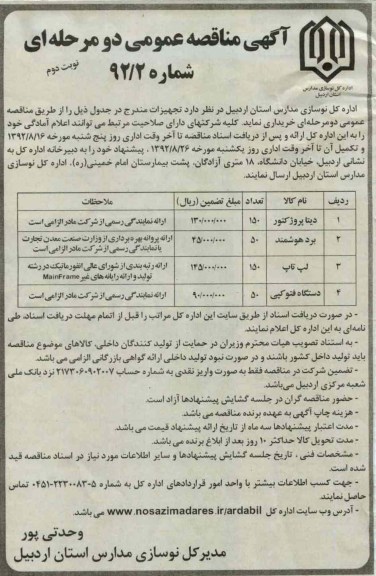 آگهی مناقصه عمومی دو مرحله ای
شماره ۹۲/۲
نوبت دوم
اداره کل نوسازی مدارس
استان اردبیل
اداره کل نوسازی مدارس استان اردبیل در نظر دارد تجهیزات مندرج در جدول ذیل را از طریق مناقصه
عمومی دومرحله‌ای خریداری نماید. کلیه شرکتهای دارای صلاحیت مرتبط می توانند اعلام آمادگی خود
را به این اداره کل ارائه و پس از دریافت اسناد مناقصه تا آخر وقت اداری روز پنج شنبه مورخه ۱۳۹۲/۸/۱۶
و تکمیل آن تا آخر وقت اداری روز یکشنبه مورخه ۱۳۹۲/۸/۲۶ ، پیشنهاد خود را به دبیرخانه اداره کل به
نشانی اردبیل، خیابان دانشگاه، ۱۸ متری آزادگان، پشت بیمارستان امام خمینی(ره)، اداره کل نوسازی
مدارس استان اردبیل ارسال نمایند.
ردیف نام کالا تعداد مبلغ تضمین (ریال) ملاحظات
۱ دیتا پروژکتور ۱۵۰ ۱۳۰/۰۰۰/۰۰۰ ارائه نمایندگی رسمی از شرکت مادر الزامی است
۲ برد هوشمند ۵۰ ۴۵/۰۰۰/۰۰۰ ارائه پروانه بهره برداری از وزارت صنعت معدن تجارت
یا نمایندگی رسمی از شرکت مادر الزامی است
۳ لپ تاپ ۱۵۰ ۱۴۵/۰۰۰/۰۰۰ ارائه رتبه بندی از شورای عالی انفورماتیک در رشته
تولید و ارائه رایانه های غیر MainFrame
۴ دستگاه فتوکپی ۵۰ ۹۰/۰۰۰/۰۰۰ ارائه نمایندگی رسمی از شرکت مادر الزامی است
- در صورت دریافت اسناد از طریق سایت این اداره کل مراتب را قبل از اتمام مهلت دریافت اسناد، طی
نامه‌ای به این اداره کل اعلام نمایند.
- به استناد تصویب هیات محترم وزیران در حمایت از تولید کنندگان داخلی، کالاهای موضوع مناقصه
باید تولید داخل کشور باشند و در صورت نبود تولید داخلی ارائه گواهی بازرگانی الزامی می باشد.
- تضمین شرکت در مناقصه فقط به صورت واریز نقدی به شماره حساب ۲۱۷۳۰۶۰۹۰۲۰۰۷ نزد بانک ملی
شعبه مرکزی اردبیل می‌باشد.
- حضور مناقصه گران در جلسه گشایش پیشنهادها آزاد است.
- هزینه چاپ آگهی به عهده برنده مناقصه می باشد.
- مدت اعتبار پیشنهادها سه ماه از تاریخ ارائه پیشنهاد قیمت می باشد.
- مدت تحویل کالا حداکثر ۱۰ روز بعد از ابلاغ برنده می باشد.
- مشخصات فنی ، تاریخ جلسه گشایش پیشنهادها و سایر اطلاعات مورد نیاز در اسناد مناقصه قید
شده است.
- جهت کسب اطلاعات بیشتر با واحد امور قراردادهای اداره کل به شماره ۵-۲۲۳۰۰۸۳-۰۴۵۱ تماس
حاصل نمایند.
- آدرس وب سایت اداره کل www.nosazimadares.ir/ardabil می باشد.
وحدتی پور
مدیرکل نوسازی مدارس استان اردبیل